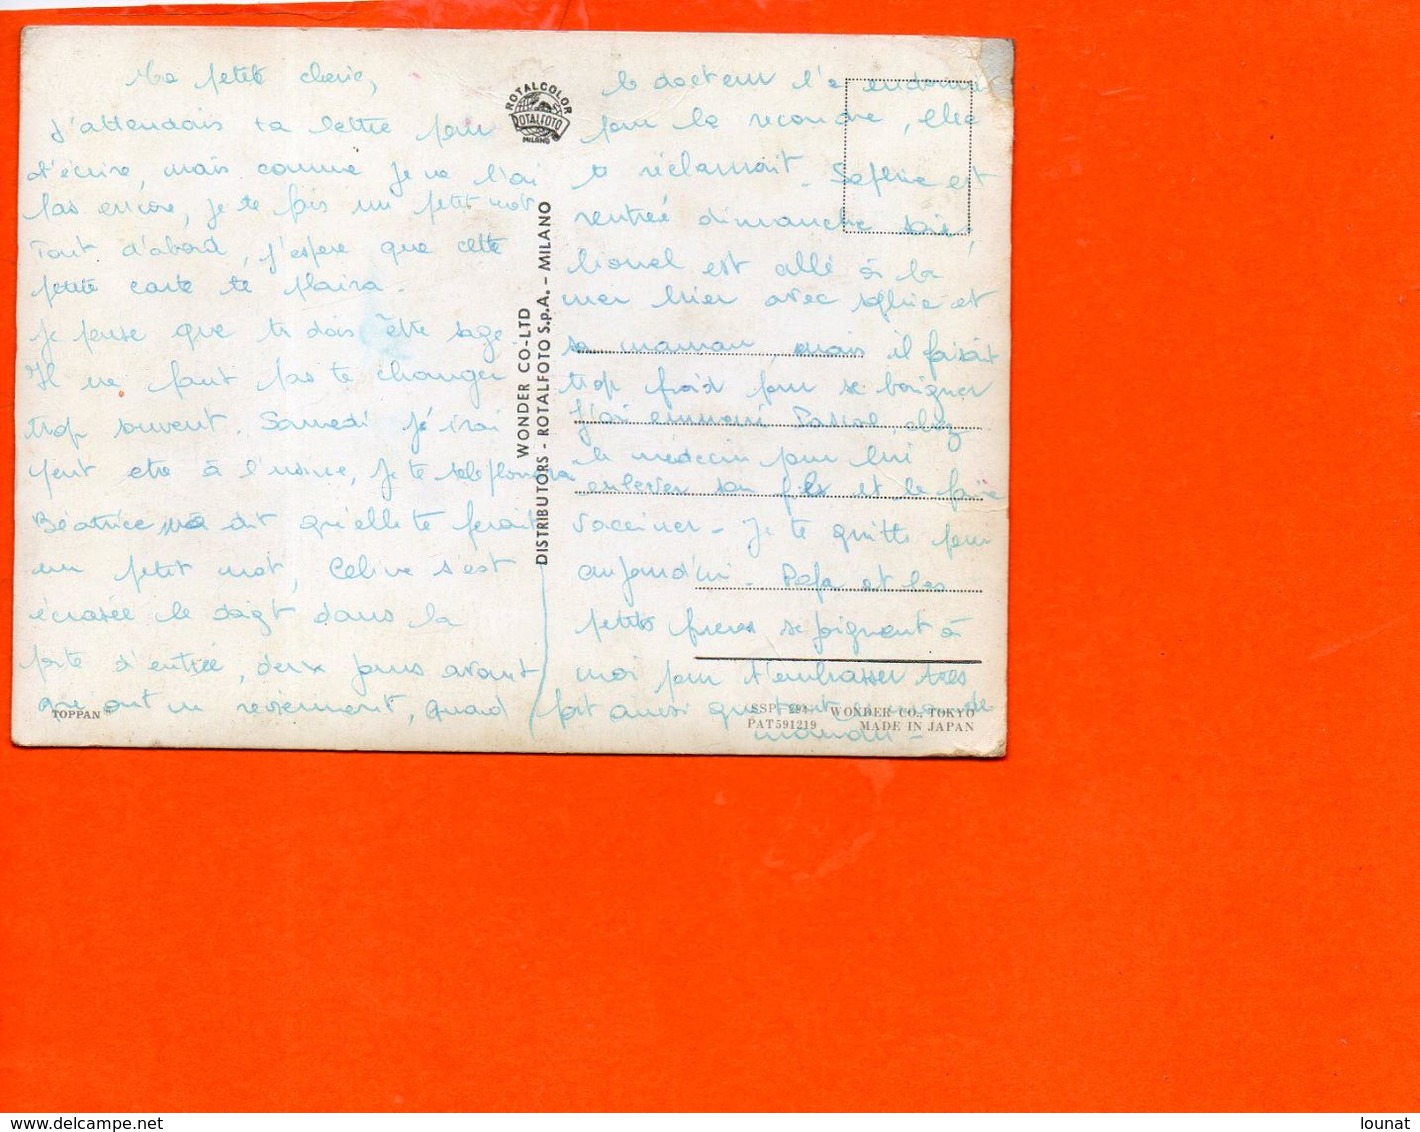 Ma petite cherie,
J'attendais ta lettre pour
t'écrire, mais comme je ne l'ai
pas encore, je te fais un petit mot
Tout d'abord, j'espere que cette
petite carte te plaira.
Je pense que tu dois être sage
Il ne faut pas te changer
trop souvent. Samedi j'irai
peut etre à l'usine, je te telephonerai
Béatrice m'a dit qu'elle te ferait
un petit mot, Celine s'est
écrasée le doigt dans la
porte d'entrée, deux jours avant
qui ont un versement, quand
le docteur l'a endormi
pour la recoudre, elle
te réclamait. Sophie est
rentrée dimanche soir,
Lionel est allé à la
mer hier avec sophie et
sa maman, mais il faisait
trop froid pour se baigner
J'ai emmené Pascal, chez
le médecin pour lui
enlever son fils et le faire
vacciner - Je te quitte pour
aujourd'hui - Papa et les
petits freres se joignent à
moi pour t'embrasser tres
fort ainsi que toute
maman -
ROTALCOLOR
ROTALFOTO
MILANO
WONDER CO-LTD
DISTRIBUTORS - ROTALFOTO S.p.A. - MILANO
TOPPAN
SSP 294 WONDER CO., TOKYO
PAT591219 MADE IN JAPAN
www.delcampe.net
lounat